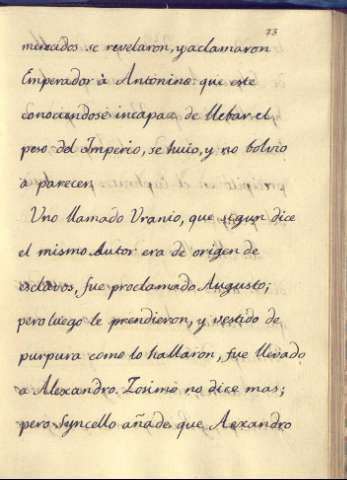 73
mercados se revelaron, y aclamaron
Emperador à Antonino: que este
conociendose incapaz de llebar el
peso del Imperio, se huio, y no bolvio
a parecer,
Uno llamado Vranio, que segun dice
el mismo Autor era de origen de
esclavos, fue proclamado Augusto;
pero luego le prendieron, y vestido de
purpura como lo hallaron, fue llevado
a Alexandro. Zosimo no dice mas;
pero Syncello añade que Aexandro